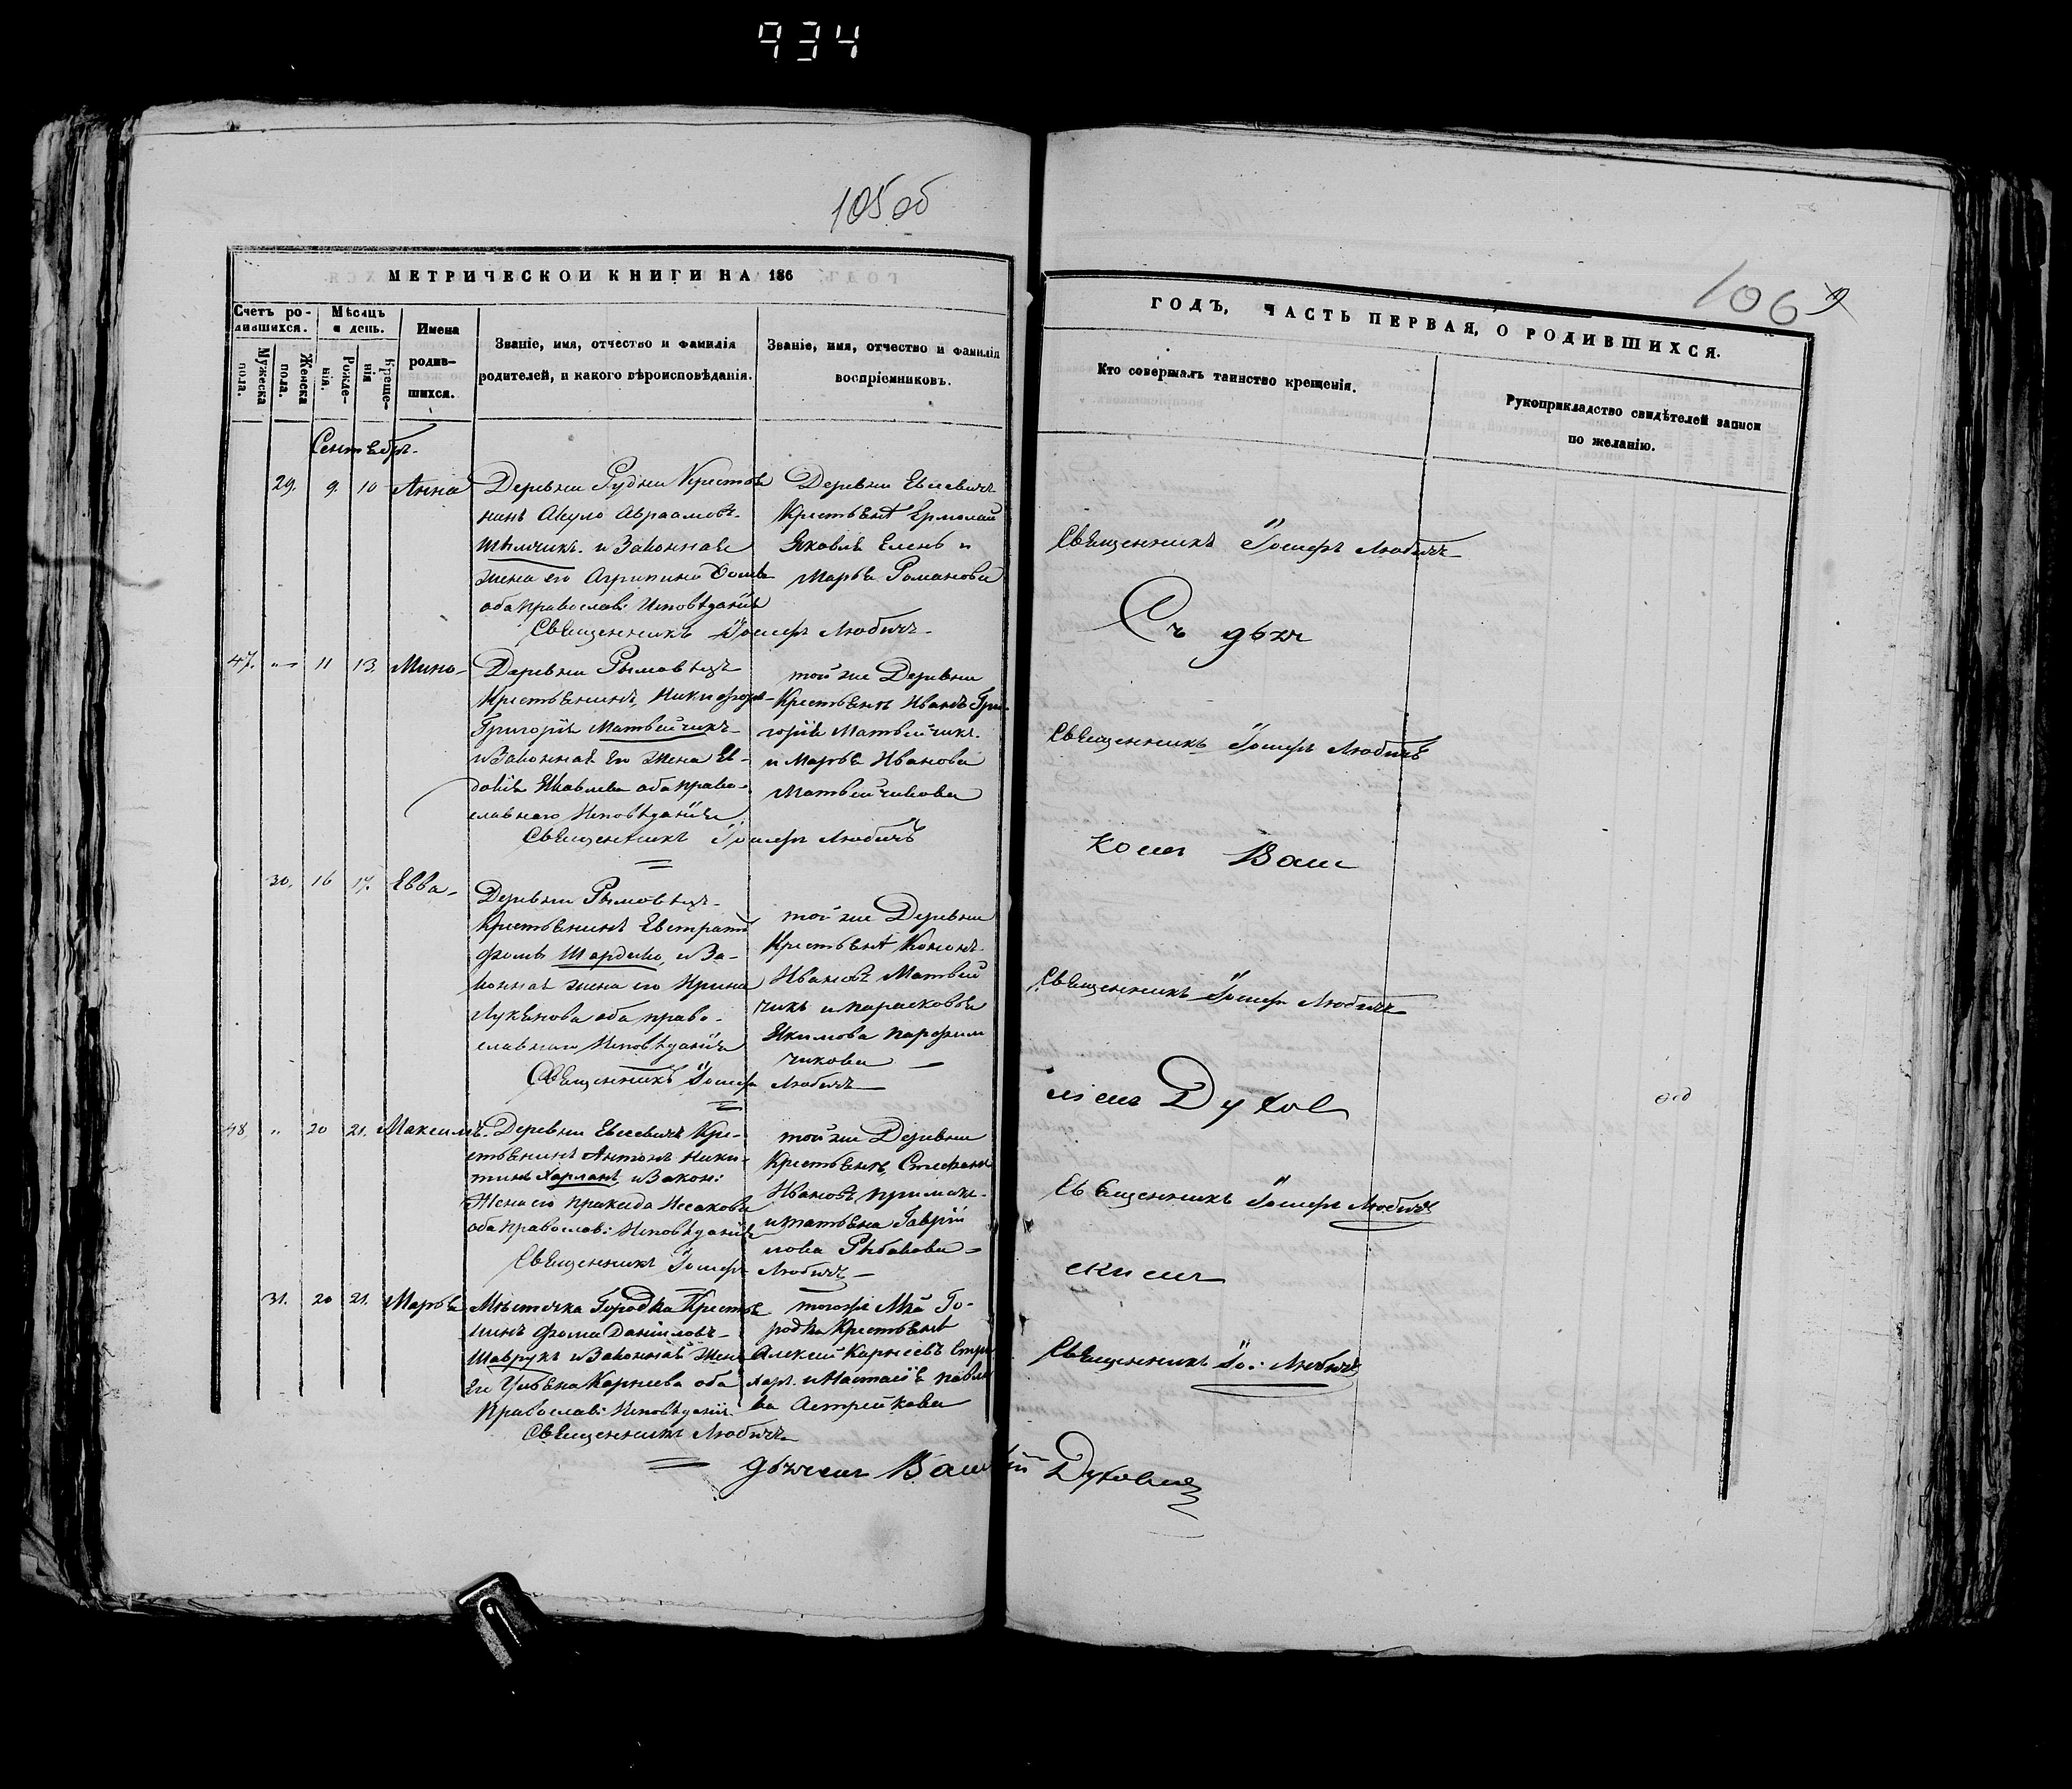 934
105 об
МЕТРИЧЕСКОЙ КНИГИ НА 186
Счетъ ро-
дившихся.
Мужеска
пола.
Женска
пола.
Мѣсяцъ
и день.
Рожде-
нія.
Креще-
нія
Имена
родив-
шихся.
Званіе, имя, отчество и фамилія
родителей, и какого вѣроисповѣданія.
Званіе, имя, отчество и фамилія
воспріемниковъ.
Сентябрь.
29. 9. 10 Анна
Деревни Рудни Крестья
нинъ Авраамовъ
и Законная
жена его Агрипина
оба православ: Исповѣданія
Священникъ Іосифъ Любичъ
Деревни Евсевичъ
Крестьянъ Ермолай
Яковлевъ и
Марья Романова
47. 11 13. Мина
Деревни Рымовецъ
Крестьянинъ Никифоръ
Григорьевъ Матвейчикъ
и Законная Его Жена Ев-
докія Яковлева оба право-
славнаго Исповѣданія
Священникъ Іосифъ Любичъ
той же Деревни
Крестьянъ Иванъ Гри-
горьевъ Матвейчикъ
и Марья Иванова
Матвейчикова
30. 16 17. Евва
Деревни Рымовецъ
Крестьянинъ Евстратъ
Фоминъ и За-
конная жена его Ирина
Лукьянова оба право-
славнаго Исповѣданія
Священникъ Іосифъ Любичъ
той же Деревни
Крестьянъ Кононъ
Ивановъ Матвей
чикъ и Парасковья
Якимова Парфим
чикова
48 20 21. Максимъ
Деревни Евсевичъ Кре-
стьянинъ Антонъ Ники-
тинъ Харланъ и Закон:
Жена его Исакова
оба православ: Исповѣданія
Священникъ Іосифъ Любичъ
той же Деревни
Крестьянъ Стефанъ
Ивановъ Примакъ
и Татьяна Гаврій
лова Рыбакова
31. 20 21. Марья
Мѣстечка Городка Крестья
нинъ Фома Даниловъ
Шаврукъ и Законная Жена
Его Ульяна Карнеева оба
Православ: Исповѣданія
Священникъ Любичъ
того же М-ка Го-
родка Крестьянъ
Алексей Карнеевъ
и Настасія Павло
ва Астрейкова
106
ГОДЪ, ЧАСТЬ ПЕРВАЯ, О РОДИВШИХСЯ.
Кто совершалъ таинство крещенія.
Рукоприкладство свидѣтелей записи
по желанію.
Священникъ Іосифъ Любичъ
Священникъ Іосифъ Любичъ
Священникъ Іосифъ Любичъ
Священникъ Іосифъ Любичъ
Священникъ Іо: Любичъ